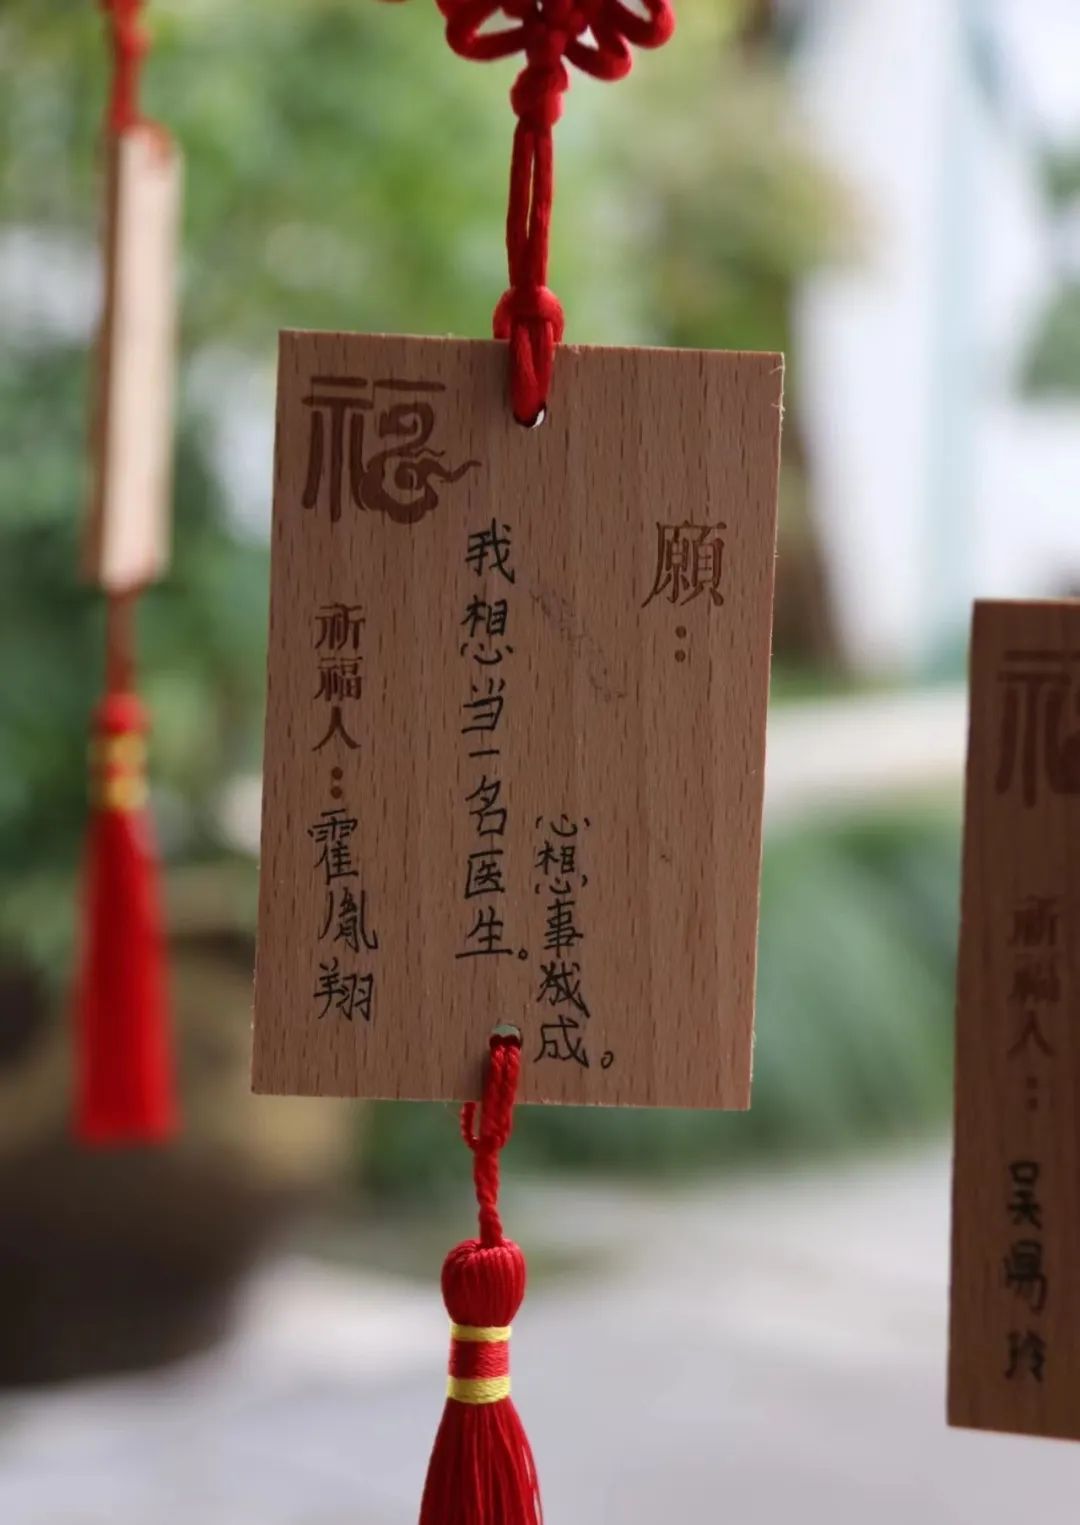 福
願：
我想当一名医生。
心想事成。
祈福人：霍胤翔
祈福人：吴玲